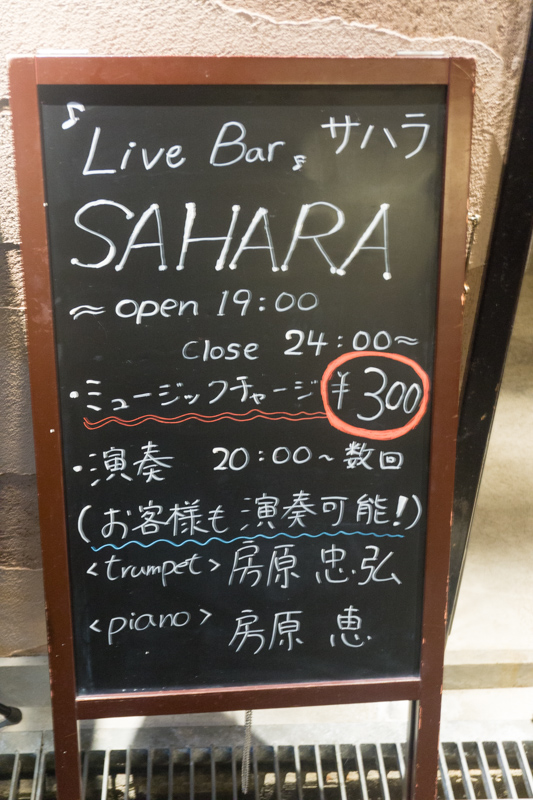 ♪ Live Bar ♪ サハラ
SAHARA
〜 open 19:00
close 24:00〜
・ミュージックチャージ ¥300
・演奏 20:00〜 数回
(お客様も演奏可能!)
<trumpet> 房原 忠弘
<piano> 房原 恵